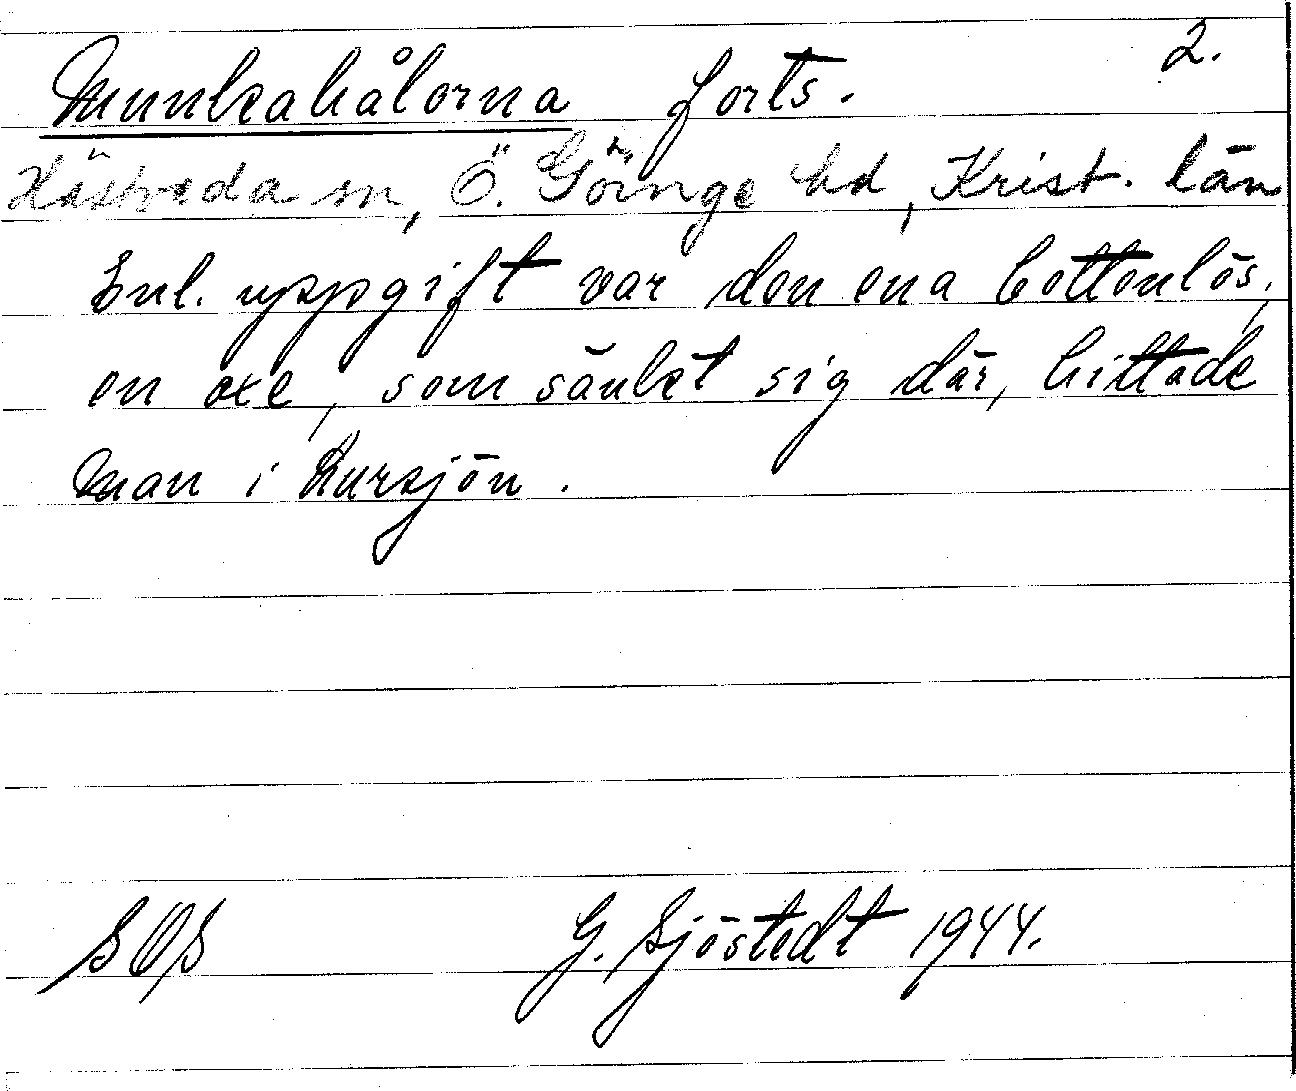 2.
Munkahålorna forts.
Hästveda sn, Ö. Göinge hd, Krist. län
Enl. uppgift var den ena bottenlös;
en oxe, som sänkt sig där, hittade
man i Lursjön.
SOS G. Sjöstedt 1944.